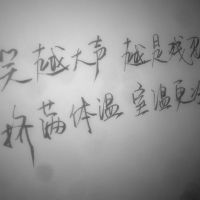 笑越大声 越是残忍
挤满体温 室温更冷